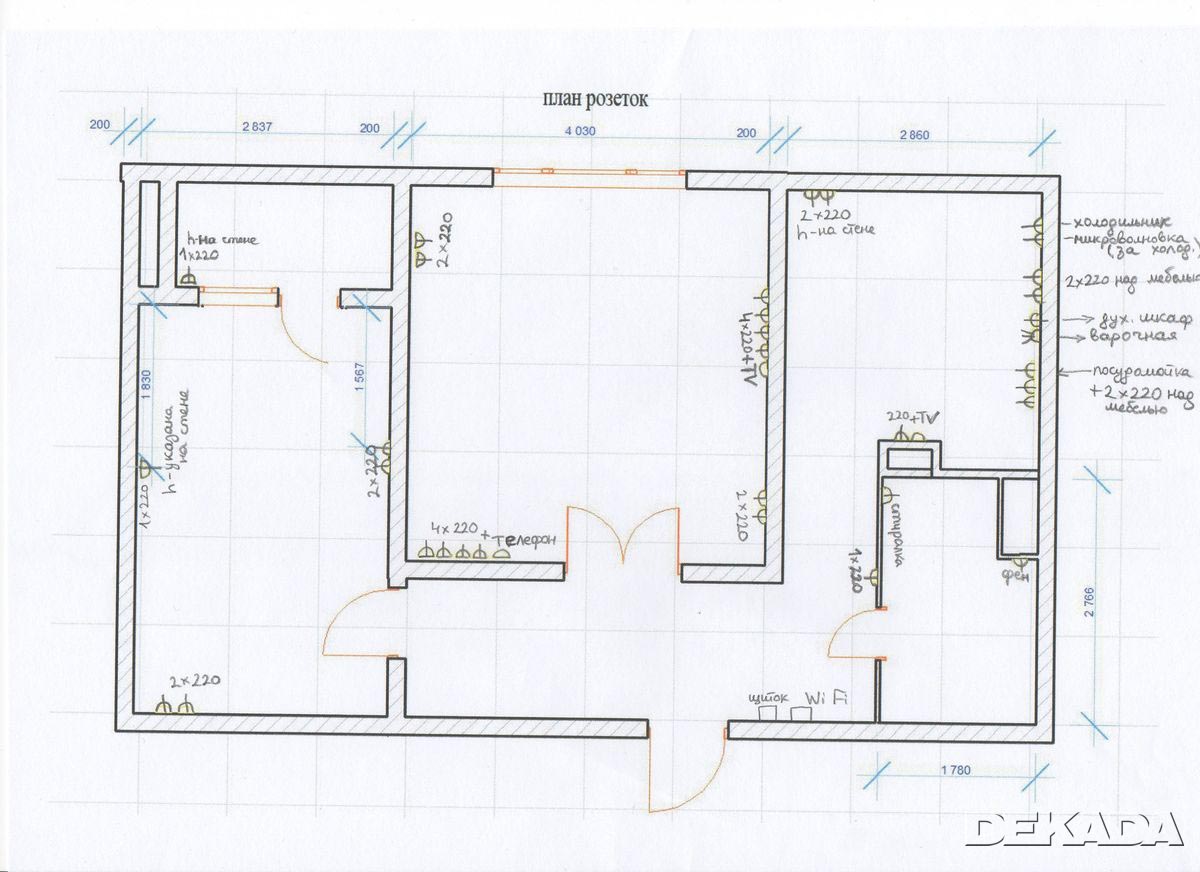 план розеток
200
2 837
200
4 030
200
2 860
h-на стене
1×220
2×220
2×220
h-на стене
-холодильник
-микроволновка
(за холод.)
2×220 над мебелью
дух. шкаф
варочная
посудомойка
+2×220 над
мебелью
4×220+TV
1 830
1 567
h-указана
на стене
1×220
2×220
220+TV
2×220
4×220+телефон
стиралка
1×220
фен
2 766
2×220
щиток
WiFi
1 780
DEKADA